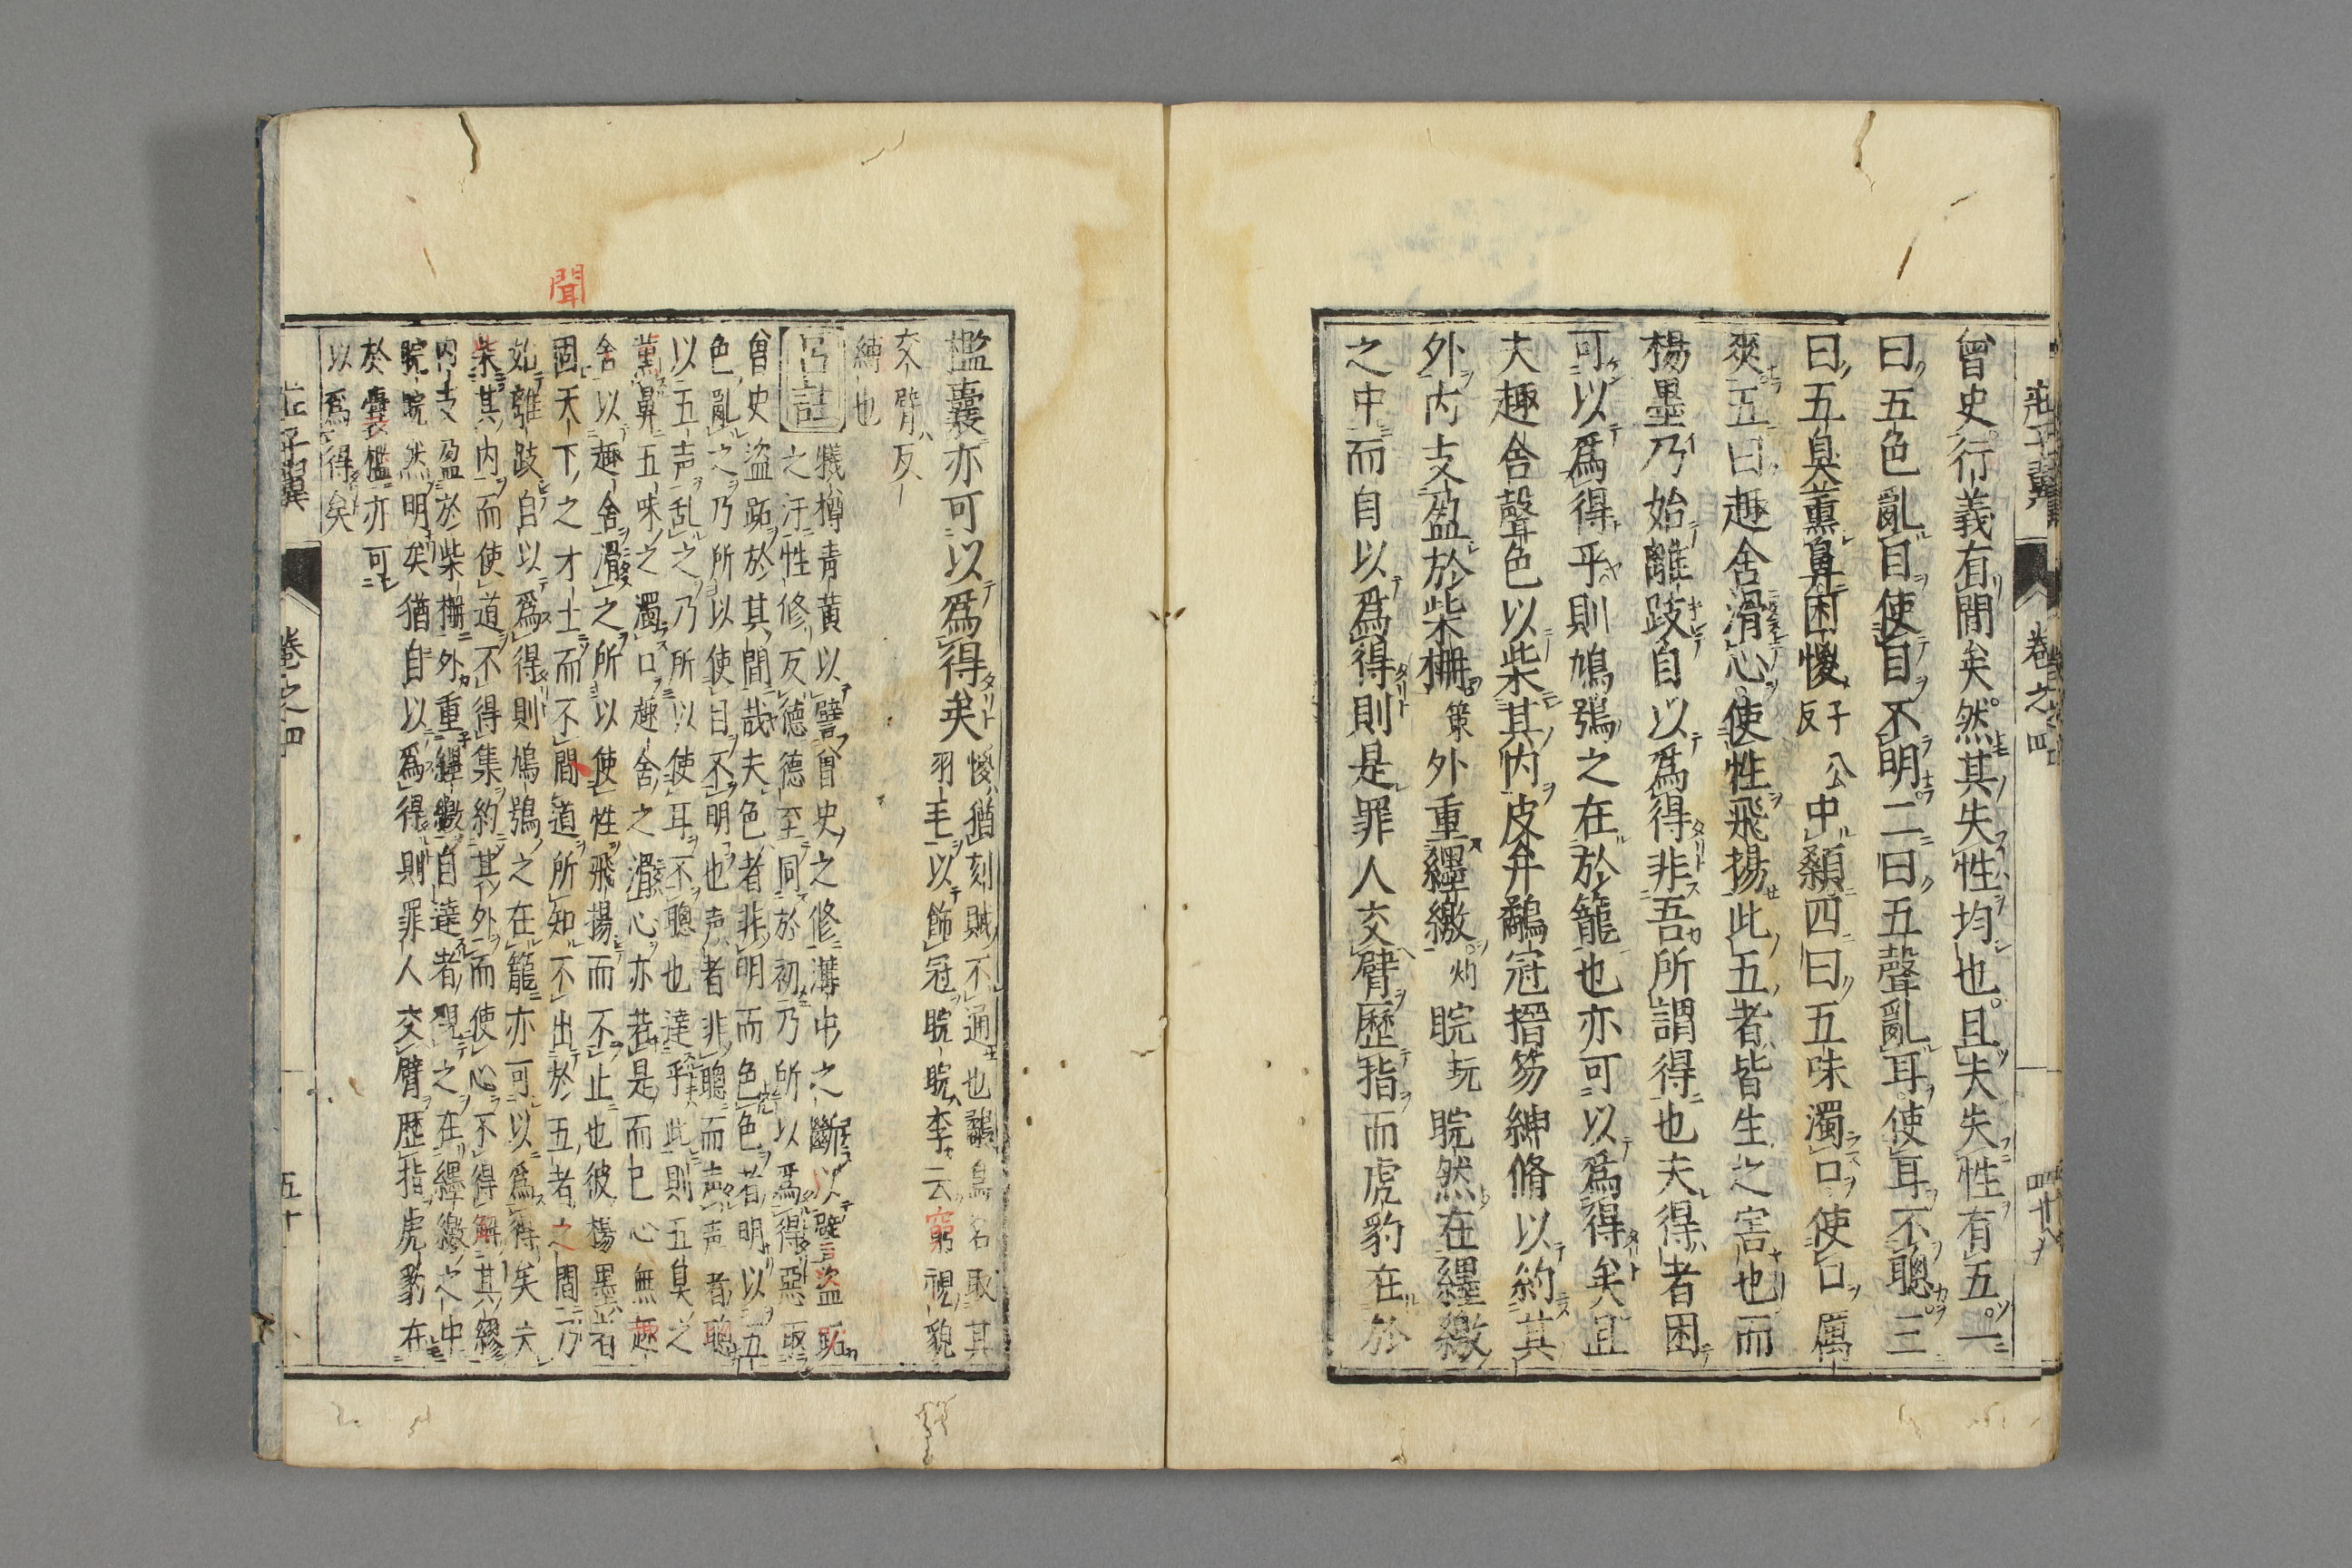 莊子翼 卷之四
曾史行義有間矣然其失性均也且夫失性有五一
曰五色亂目使目不明二曰五聲亂耳使耳不聰三
曰五臭薰鼻困惾子公反中顙四曰五味濁口使口厲
爽五曰趣舍滑心使性飛揚此五者皆生之害也而
楊墨乃始離跂自以爲得非吾所謂得也夫得者困
可以爲得乎則鳩鴞之在於籠也亦可以爲得矣且
夫趣舍聲色以柴其內皮弁鷸冠搢笏紳脩以約其
外內支盈於柴柵策外重纆繳灼睆玩睆然在纆繳
之中而自以爲得則是罪人交臂歷指而虎豹在於
檻囊亦可以爲得矣惾猶刻賊不通也鷸鳥名取其
羽毛以飾冠睆睆李云窮視貌
交臂反
縛也
呂註犧樽青黃以譬曾史之修溝中之斷以譬盜跖
之汙性修反德德至同於初乃所以爲得惡取
曾史盜跖於其間哉夫色者非明而色色者明以五
色亂之乃所以使目不明也声者非聰而声声者聰
以五声乱之乃所以使耳不聰也達乎此則五臭之
薰鼻五味之濁口趣舍之滑心亦若是而已心無趣
舍以趣舍滑之所以使性飛揚而不止也彼楊墨者
固天下之才士而不間道所知不出於五者之間乃
始離跂自以爲得則鳩鴞之在籠亦可以爲得矣六
柴其內而使道不得集約其外而使心不得解其繆
內支盈於柴柵外重纆繳自達者視之在纆繳之中
睆睆然明矣猶自以爲得則罪人交臂歷指虎豹在
於囊檻亦可
以爲得矣
聞
莊子翼 卷之四 五十